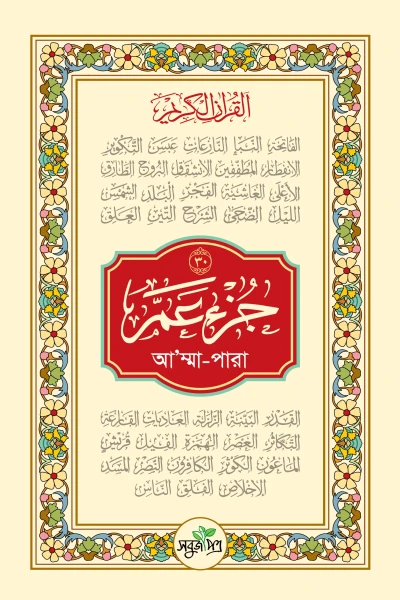 القرآن الكريم
الفاتحة النبإ النازعات عبس التكوير
الانفطار المطففين الانشقاق البروج الطارق
الأعلى الغاشية الفجر البلد الشمس
الليل الضحى الشرح التين العلق
٣٠
جزء عم
আ'ম্মা-পারা
القدر البينة الزلزلة العاديات القارعة
التكاثر العصر الهمزة الفيل قريش
الماعون الكوثر الكافرون النصر المسد
الإخلاص الفلق الناس
সবুজপত্র